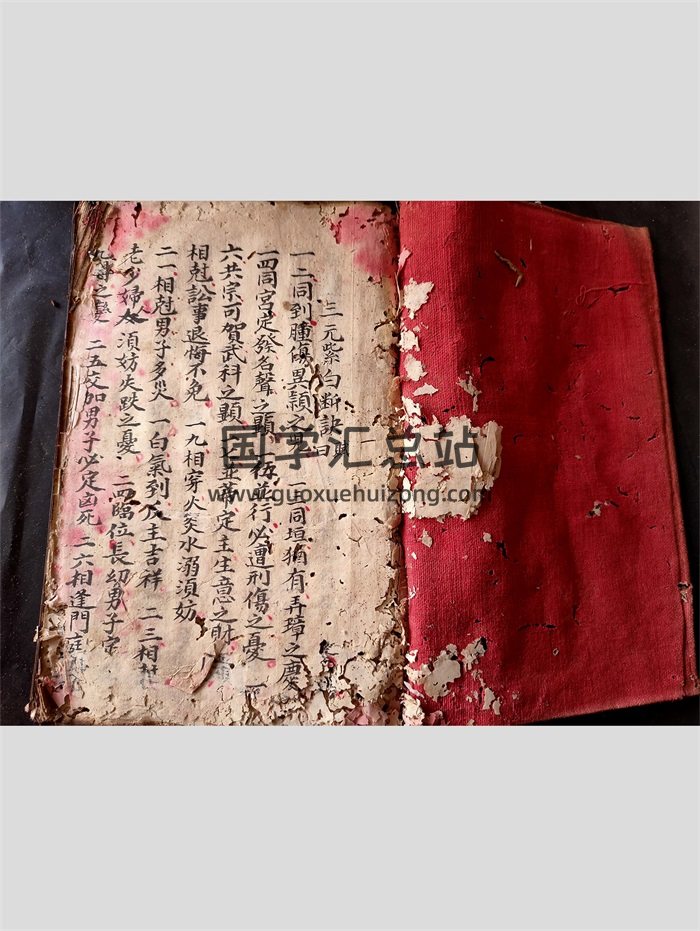 三元紫白断訣曰
一二同到腫傷異頴之 一三同垣猶有弄璋之慶
一四同宮定發名聲之顯 一伍並行必遭刑傷之憂 一
六共宗可賀武科之顯 一七並 定主生意之財
相尅訟事退悔不免 一九相穿火 水溺須妨
二一相尅男子多災 一白氣到反主吉祥 二三相
老少婦人須妨失跌之憂 二四臨位長幼男子
之變 二五交加男子必定凶死 二六相逢門庭
国学汇总站
www.guoxuehuizong.com